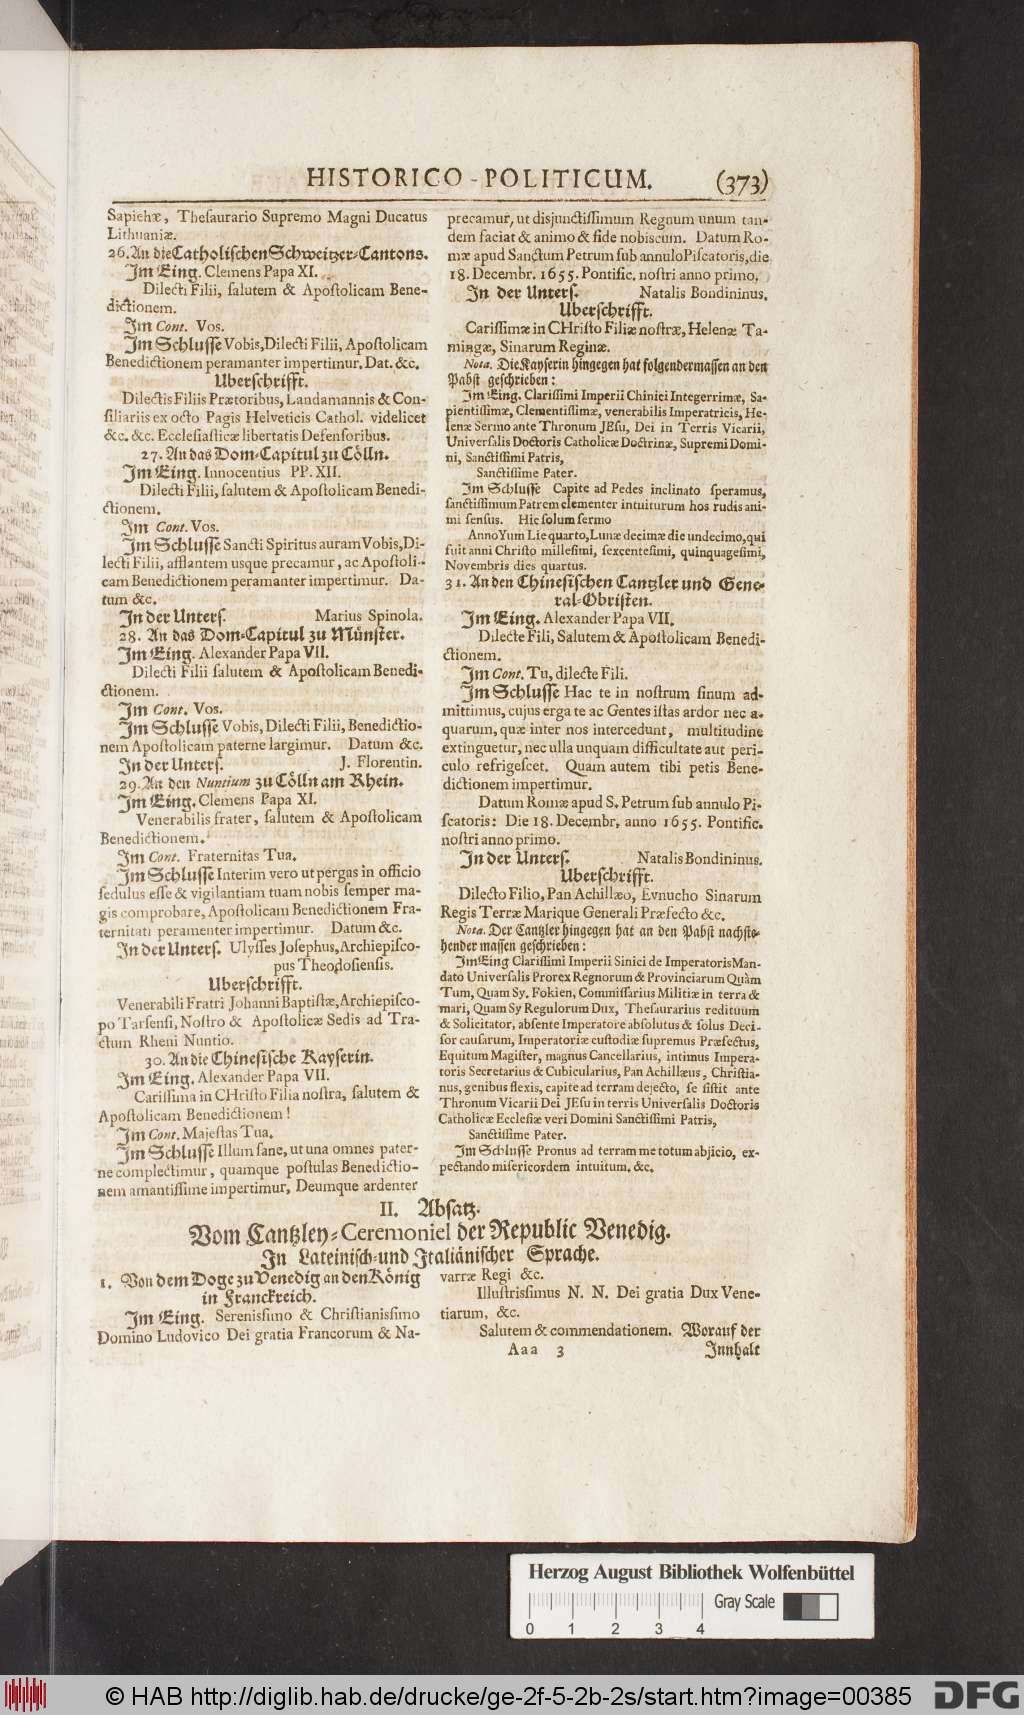 HISTORICO-POLITICUM. (373)
Sapiehæ, Thesaurario Supremo Magni Ducatus
Lithuaniæ.
26. An die Catholischen Schweitzer-Cantons.
Im Eing. Clemens Papa XI.
Dilecti Filii, salutem & Apostolicam Bene-
dictionem.
Im Cont. Vos.
Im Schlusse Vobis, Dilecti Filii, Apostolicam
Benedictionem peramanter impertimur. Dat. &c.
Uberschrifft.
Dilectis Filiis Prætoribus, Landamannis & Con-
siliariis ex octo Pagis Helveticis Cathol. videlicet
&c. &c. Ecclesiasticæ libertatis Defensoribus.
27. An das Dom-Capitul zu Cölln.
Im Eing. Innocentius PP. XII.
Dilecti Filii, salutem & Apostolicam Benedi-
ctionem.
Im Cont. Vos.
Im Schlusse Sancti Spiritus auram Vobis, Di-
lecti Filii, afflantem usque precamur, ac Apostoli-
cam Benedictionem peramanter impertimur. Da-
tum &c.
In der Unters. Marius Spinola.
28. An das Dom-Capitul zu Münster.
Im Eing. Alexander Papa VII.
Dilecti Filii salutem & Apostolicam Benedi-
ctionem.
Im Cont. Vos.
Im Schlusse Vobis, Dilecti Filii, Benedictio-
nem Apostolicam paterne largimur. Datum &c.
In der Unters. J. Florentin.
29. An den Nuntium zu Cölln am Rhein.
Im Eing. Clemens Papa XI.
Venerabilis frater, salutem & Apostolicam
Benedictionem.
Im Cont. Fraternitas Tua.
Im Schlusse Interim vero ut pergas in officio
sedulus esse & vigilantiam tuam nobis semper ma-
gis comprobare, Apostolicam Benedictionem Fra-
ternitati peramenter impertimur. Datum &c.
In der Unters. Ulysses Josephus, Archiepisco-
pus Theodosiensis.
Uberschrifft.
Venerabili Fratri Johanni Baptistæ, Archiepisco-
po Tarsensi, Nostro & Apostolicæ Sedis ad Tra-
ctum Rheni Nuntio.
30. An die Chinesische Kayserin.
Im Eing. Alexander Papa VII.
Carissima in CHristo Filia nostra, salutem &
Apostolicam Benedictionem!
Im Cont. Majestas Tua.
Im Schlusse Illum sane, ut una omnes pater-
ne complectimur, quamque postulas Benedictio-
nem amantissime impertimur, Deumque ardenter
precamur, ut disjunctissimum Regnum unum tan-
dem faciat & animo & fide nobiscum. Datum Ro-
mæ apud Sanctum Petrum sub annulo Piscatoris, die
18. Decembr. 1655. Pontific. nostri anno primo.
In der Unters. Natalis Bondininus.
Uberschrifft.
Carissimæ in CHristo Filiæ nostræ, Helenæ Ta-
mingæ, Sinarum Reginæ.
Nota. Die Kayserin hingegen hat folgendermassen an den
Pabst geschrieben:
Im Eing. Clarissimi Imperii Chinici Integerrimæ, Sa-
pientissimæ, Clementissimæ, venerabilis Imperatricis, He-
lenæ Sermo ante Thronum JEsu, Dei in Terris Vicarii,
Universalis Doctoris Catholicæ Doctrinæ, Supremi Domi-
ni, Sanctissimi Patris,
Sanctissime Pater.
Im Schlusse Capite ad Pedes inclinato speramus,
sanctissimum Patrem clementer intuiturum hos rudis ani-
mi sensus. Hic solum sermo
Anno Yum Lie quarto, Lunæ decimæ die undecimo, qui
fuit anni Christo millesimi, sexcentesimi, quinquagesimi,
Novembris dies quartus.
31. An den Chinesischen Cantzler und Gene-
ral-Obristen.
Im Eing. Alexander Papa VII.
Dilecte Fili, Salutem & Apostolicam Benedi-
ctionem.
Im Cont. Tu, dilecte Fili.
Im Schlusse Hac te in nostrum sinum ad-
mittimus, cujus erga te ac Gentes istas ardor nec a-
quarum, quæ inter nos intercedunt, multitudine
extinguetur, nec ulla unquam difficultate aut peri-
culo refrigescet. Quam autem tibi petis Bene-
dictionem impertimur.
Datum Romæ apud S. Petrum sub annulo Pi-
scatoris: Die 18. Decembr. anno 1655. Pontific.
nostri anno primo.
In der Unters. Natalis Bondininus.
Uberschrifft.
Dilecto Filio, Pan Achillæo, Evnucho Sinarum
Regis Terræ Marique Generali Præfecto &c.
Nota. Der Cantzler hingegen hat an den Pabst nachste-
hender massen geschrieben:
Im Eing Clarissimi Imperii Sinici de Imperatoris Man-
dato Universalis Prorex Regnorum & Provinciarum Quàm
Tum, Quam Sy. Fokien, Commissarius Militiæ in terra &
mari, Quam Sy Regulorum Dux, Thesaurarius redituum
& Solicitator, absente Imperatore absolutus & solus Deci-
sor causarum, Imperatoriæ custodiæ supremus Præfectus,
Equitum Magister, magnus Cancellarius, intimus Impera-
toris Secretarius & Cubicularius, Pan Achillæus, Christia-
nus, genibus flexis, capite ad terram dejecto, se sistit ante
Thronum Vicarii Dei JEsu in terris Universalis Doctoris
Catholicæ Ecclesiæ veri Domini Sanctissimi Patris,
Sanctissime Pater.
Im Schlusse Pronus ad terram me totum abjicio, ex-
pectando misericordem intuitum. &c.
II. Absatz.
Vom Cantzley-Ceremoniel der Republic Venedig.
In Lateinisch- und Italiänischer Sprache.
1. Von dem Doge zu Venedig an den König
in Franckreich.
Im Eing. Serenissimo & Christianissimo
Domino Ludovico Dei gratia Francorum & Na-
varræ Regi &c.
Illustrissimus N. N. Dei gratia Dux Vene-
tiarum, &c.
Salutem & commendationem. Worauf der
Aaa 3 Innhalt
Herzog August Bibliothek Wolfenbüttel
Gray Scale
0 1 2 3 4
© HAB http://diglib.hab.de/drucke/ge-2f-5-2b-2s/start.htm?image=00385 DFG